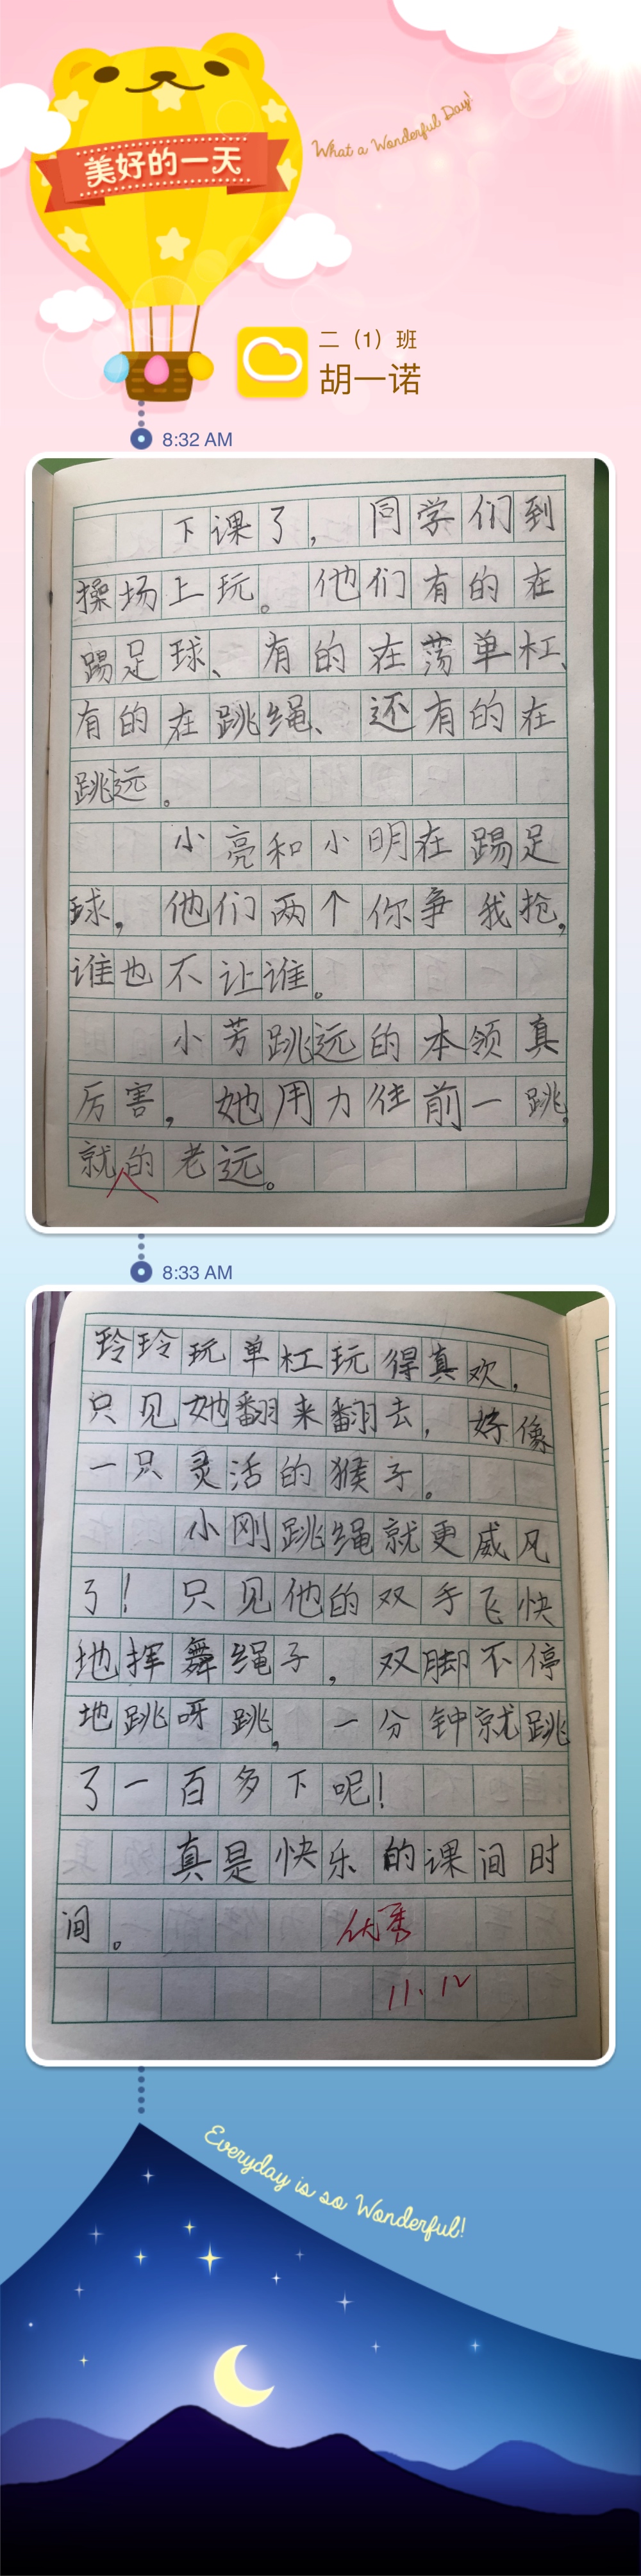 美好的一天
What a Wonderful Day!
二（1）班
胡一诺
8:32 AM
下课了，同学们到
操场上玩。他们有的在
踢足球、有的在荡单杠、
有的在跳绳、还有的在
跳远。
小亮和小明在踢足
球，他们两个你争我抢，
谁也不让谁。
小芳跳远的本领真
厉害，她用力往前一跳，
就的老远。
8:33 AM
玲玲玩单杠玩得真欢，
只见她翻来翻去，好像
一只灵活的猴子。
小刚跳绳就更威风
了！只见他的双手飞快
地挥舞绳子，双脚不停
地跳呀跳，一分钟就跳
了一百多下呢！
真是快乐的课间时
间。
优秀
11.12
Everyday is so Wonderful!